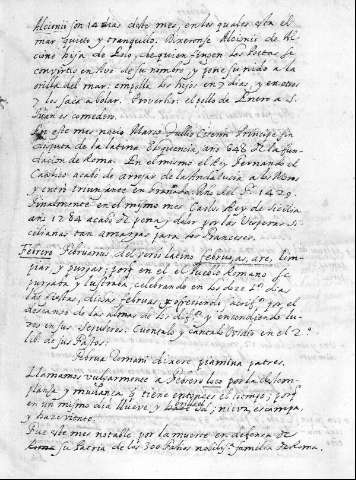 Alcinis son 14 dias deste mes, en los quales esta el
mar quieto y tranquilo. Dixeronse Alcinis de Al
cione hija de Eolo, de quien fingen los Poetas se
convirtio en Ave de su nombre, y pone su nido a la
orilla del mar, empolla los hijos en 7 dias, y en otros
7 los saca a volar. Proverbio: el pollo de Enero a S.
Juan es comedero.
En este mes nacio Marco Tullio Ceceron Principe sin
disputa de la latina Eloquencia, año 648 de la fun
dacion de Roma. En el mismo el Rey Fernando el
Catolico acabò de arrojar de la Andalucia a los Moros
y entrò triunfante en Granada, Año del Sr. 1492.
Finalmente en el mismo mes Carlos Rey de Sicilia
año 1284 acabò de pena y dolor por las Visperas Si
cilianas tan amargas para los Franceses.
Febrero Februarius del verbo latino februare, lim
piar y purgar; porq en el el Pueblo Romano se
purgaba y lustraba, celebrando en los doze dias
las fiestas, dichas februas, y ofreciendo sacrifs. por el
descanso de las almas de los difs. y encendiendo lu
ces en sus sepulcros. Cuentalo y cantalo Ovidio en el 2.º
lib. de sus Fastos:
Februa Romani dixere piamina patres.
Llamamos vulgarmente a Febrero loco por la destem
planza y mudanza q tiene entonces el tiempo; porq
en un mismo dia llueve, y sol, nieva, escampa,
y haze viento.
Fue este mes notable por la muerte en defensa de
Roma su Patria de los 300 Fabios nobiliss. familia de Roma.